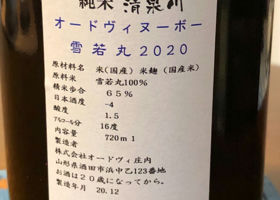 純米 清泉川
オードヴィヌーボー
雪若丸2020
原材料名 米(国産) 米麹(国産米)
原料米 雪若丸100%
精米歩合 65%
日本酒度 -4
酸度 1.5
アルコール分 16度
内容量 720ml
製造者
株式会社オードヴィ庄内
山形県酒田市浜中乙123番地
お酒は20歳になってから。
製造年月 20.12